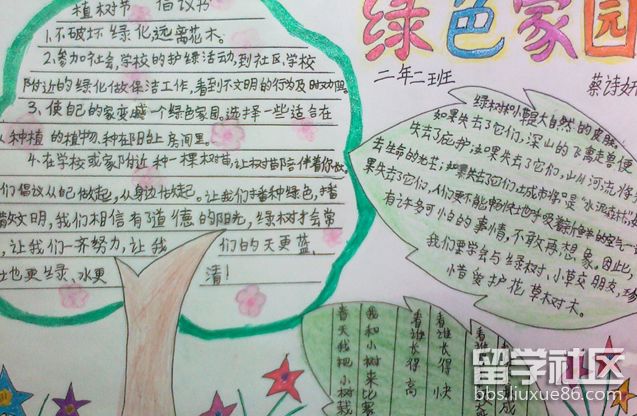 植树节 倡议书
1、不破坏绿化,远离花木。
2、参加社会,学校的护绿活动,到社区,学校
附近的绿化做保洁工作,看到不文明的行为及时劝阻。
3、使自己的家变成一个绿色家园。选择一些适合在
人种植的植物,种在阳台上,房间里。
4、在学校或家附近种一棵树苗,让树苗陪伴着你
们倡议从自己做起,从身边做起。让我们播种绿色,播
文明,我们相信有了道德的阳光,绿树才会常
,让我们一齐努力,让我们的天更蓝,
也更绿,水更清!
绿色家园
二年二班
蔡诗妍
绿树和小草是大自然的皮肤。
如果失去了它们,深山的飞禽走兽便
失去了庇护;如果失去了它们,山川河流将
去生命的光芒;如果失去了它们,城市将只是“水泥森林
果失去了它们,人们便不能畅快地呼吸着新鲜的空气
有许多可怕的事情,不敢再想象。因此,
我们要学会与绿树、小草交朋友,珍
惜爱护花草树木。
春天我把小树栽
我和小树来比赛
看谁长得高
看谁长得快
留学社区
bbs.liuxue86.com